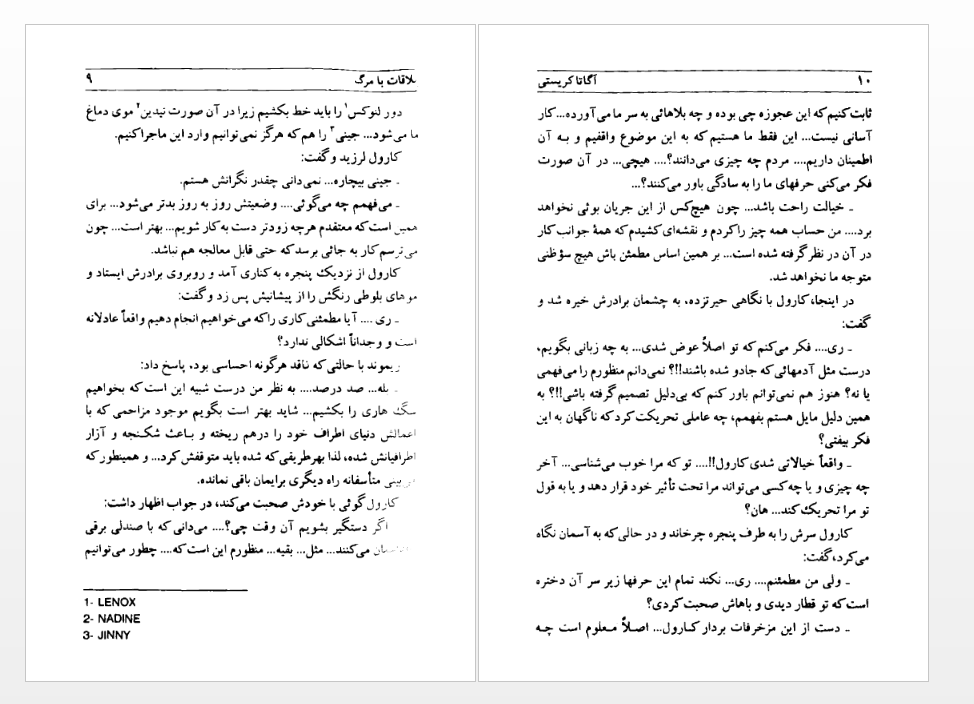 ملاقات با مرگ ۹
دور لنوکس۱ را باید خط بکشیم زیرا در آن صورت نیدین۲ موی دماغ
ما می‌شود... جینی۳ را هم که هرگز نمی‌توانیم وارد این ماجرا کنیم.
کارول لرزید و گفت:
ـ جینی بیچاره... نمی‌دانی چقدر نگرانش هستم.
ـ می‌فهمم چه می‌گوئی.... وضعیتش روز به روز بدتر می‌شود... برای
همین است که معتقدم هرچه زودتر دست به کار شویم... بهتر است... چون
می‌ترسم کار به جائی برسد که حتی قابل معالجه هم نباشد.
کارول از نزدیک پنجره به کناری آمد و روبروی برادرش ایستاد و
موهای بلوطی رنگش را از پیشانیش پس زد و گفت:
ـ ری .... آیا مطمئنی کاری را که می‌خواهیم انجام دهیم واقعاً عادلانه
است و وجداناً اشکالی ندارد؟
ریموند با حالتی که ناقد هرگونه احساسی بود، پاسخ داد:
ـ بله... صد درصد.... به نظر من درست شبیه این است که بخواهیم
سگ هاری را بکشیم... شاید بهتر است بگویم موجود مزاحمی که با
اعمالش دنیای اطراف خود را درهم ریخته و باعث شکنجه و آزار
اطرافیانش شده، لذا بهر طریقی که شده باید متوقفش کرد... و همینطور که
می‌بینی متأسفانه راه دیگری برایمان باقی نمانده.
کارول گوئی با خودش صحبت می‌کند، در جواب اظهار داشت:
اگر دستگیر بشویم آن وقت چی؟.... می‌دانی که با صندلی برقی
می‌کنند... مثل... بقیه... منظورم این است که.... چطور می‌توانیم
1- LENOX
2- NADINE
3- JINNY
آگاتا کریستی ۱۰
ثابت کنیم که این عجوزه چی بوده و چه بلاهائی به سر ما می‌آورده... کار
آسانی نیست... این فقط ما هستیم که به این موضوع واقفیم و به آن
اطمینان داریم.... مردم چه چیزی می‌دانند؟.... هیچی... در آن صورت
فکر می‌کنی حرفهای ما را به سادگی باور می‌کنند؟...
ـ خیالت راحت باشد... چون هیچ‌کس از این جریان بوئی نخواهد
برد.... من حساب همه چیز را کردم و نقشه‌ای کشیدم که همهٔ جوانب کار
در آن در نظر گرفته شده است... بر همین اساس مطمئن باش هیچ سؤظنی
متوجه ما نخواهد شد.
در اینجا، کارول با نگاهی حیرتزده، به چشمان برادرش خیره شد و
گفت:
ـ ری.... فکر می‌کنم که تو اصلاً عوض شدی... به چه زبانی بگویم،
درست مثل آدمهائی که جادو شده باشند!!؟ نمی‌دانم منظورم را می‌فهمی
یا نه؟ هنوز هم نمی‌توانم باور کنم که بی‌دلیل تصمیم گرفته باشی!!؟ به
همین دلیل مایل هستم بفهمم، چه عاملی تحریکت کرد که ناگهان به این
فکر بیفتی؟
ـ واقعاً خیالاتی شدی کارول!!.... تو که مرا خوب می‌شناسی... آخر
چه چیزی و یا چه کسی می‌تواند مرا تحت تأثیر خود قرار دهد و یا به قول
تو مرا تحریک کند... هان؟
کارول سرش را به طرف پنجره چرخاند و در حالی که به آسمان نگاه
می‌کرد، گفت:
ـ ولی من مطمئنم.... ری... نکند تمام این حرفها زیر سر آن دختره
است که تو قطار دیدی و باهاش صحبت کردی؟
ـ دست از این مزخرفات بردار کارول... اصلاً معلوم است چه